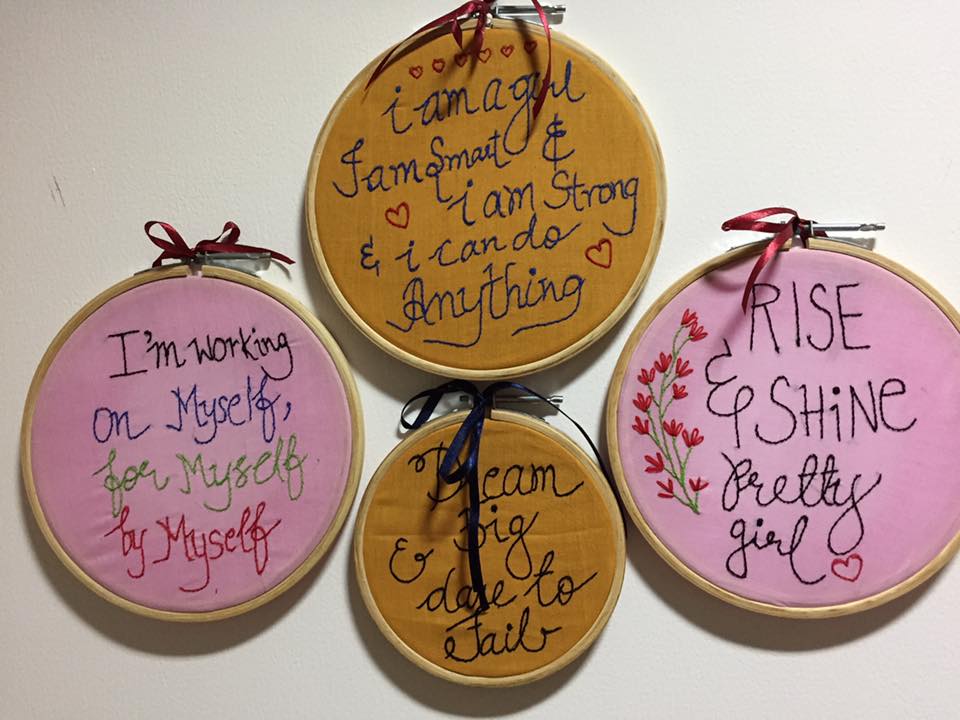 i am a girl
I am Smart &
i am Strong
& i can do
Anything
I'm working
on Myself,
for Myself
by Myself
Dream
Big
& dare to
Fail
RISE
& SHiNE
Pretty
girl